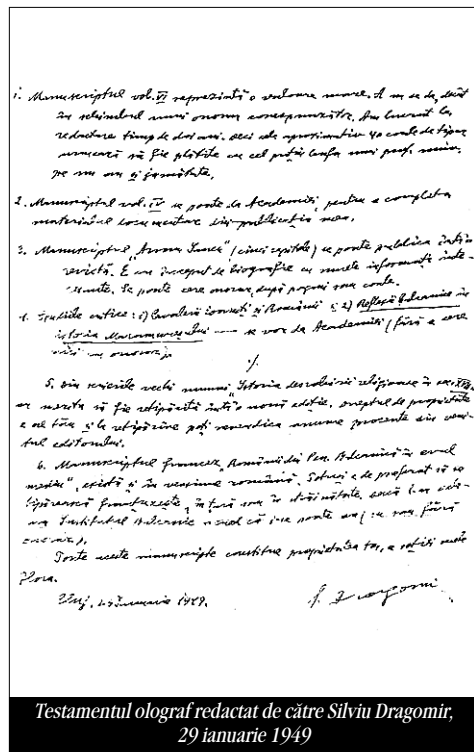 1. Manuscriptul vol. VI reprezintă o valoare mare. A nu se da, decât
în schimbul unui onorar corespunzător. Am lucrat la
redactare timp de doi ani. Deci cele aproximativ 40 coale de tipar
urmează să fie plătite cu cel puțin leafa unui prof. univ.
pe un an și jumătate.
2. Manuscriptul vol. IV se poate da Academiei, pentru a completa
materialul documentar din publicația mea.
3. Manuscriptul "Avram Iancu" (cinci capitole) se poate publica într'o
revistă. E un început de biografie cu multe informații
Se poate cere onorar, după pagini sau coale.
4. Studiile critice: 1) Cavalerii Ioaniți și Românii și 2) Reflexii bulcanice în
istoria Maramureșului se vor da Academiei (fără a cere
nici un onorar)
%
5. Din scrierile vechi numai "Istoria desrobirii religioase în sec. XVIII"
ar merita să fie retipărită într'o nouă ediție. Dreptul de proprietate
e al tău și la retipărire poți revendica anume procente din
editorului.
6. Manuscriptul francez, Românii din Pen. Balcanică în evul
mediu", există și în versiune română. Totuși e de preferat să se
tipărească franțuzește, în țară sau în străinătate,
Institutul Balcanic
Toate aceste manuscripte constitue proprietatea ta, a soției mele
Flora.
Cluj, 29 Ianuarie 1949. S. Dragomir
Testamentul olograf redactat de către Silviu Dragomir,
29 ianuarie 1949